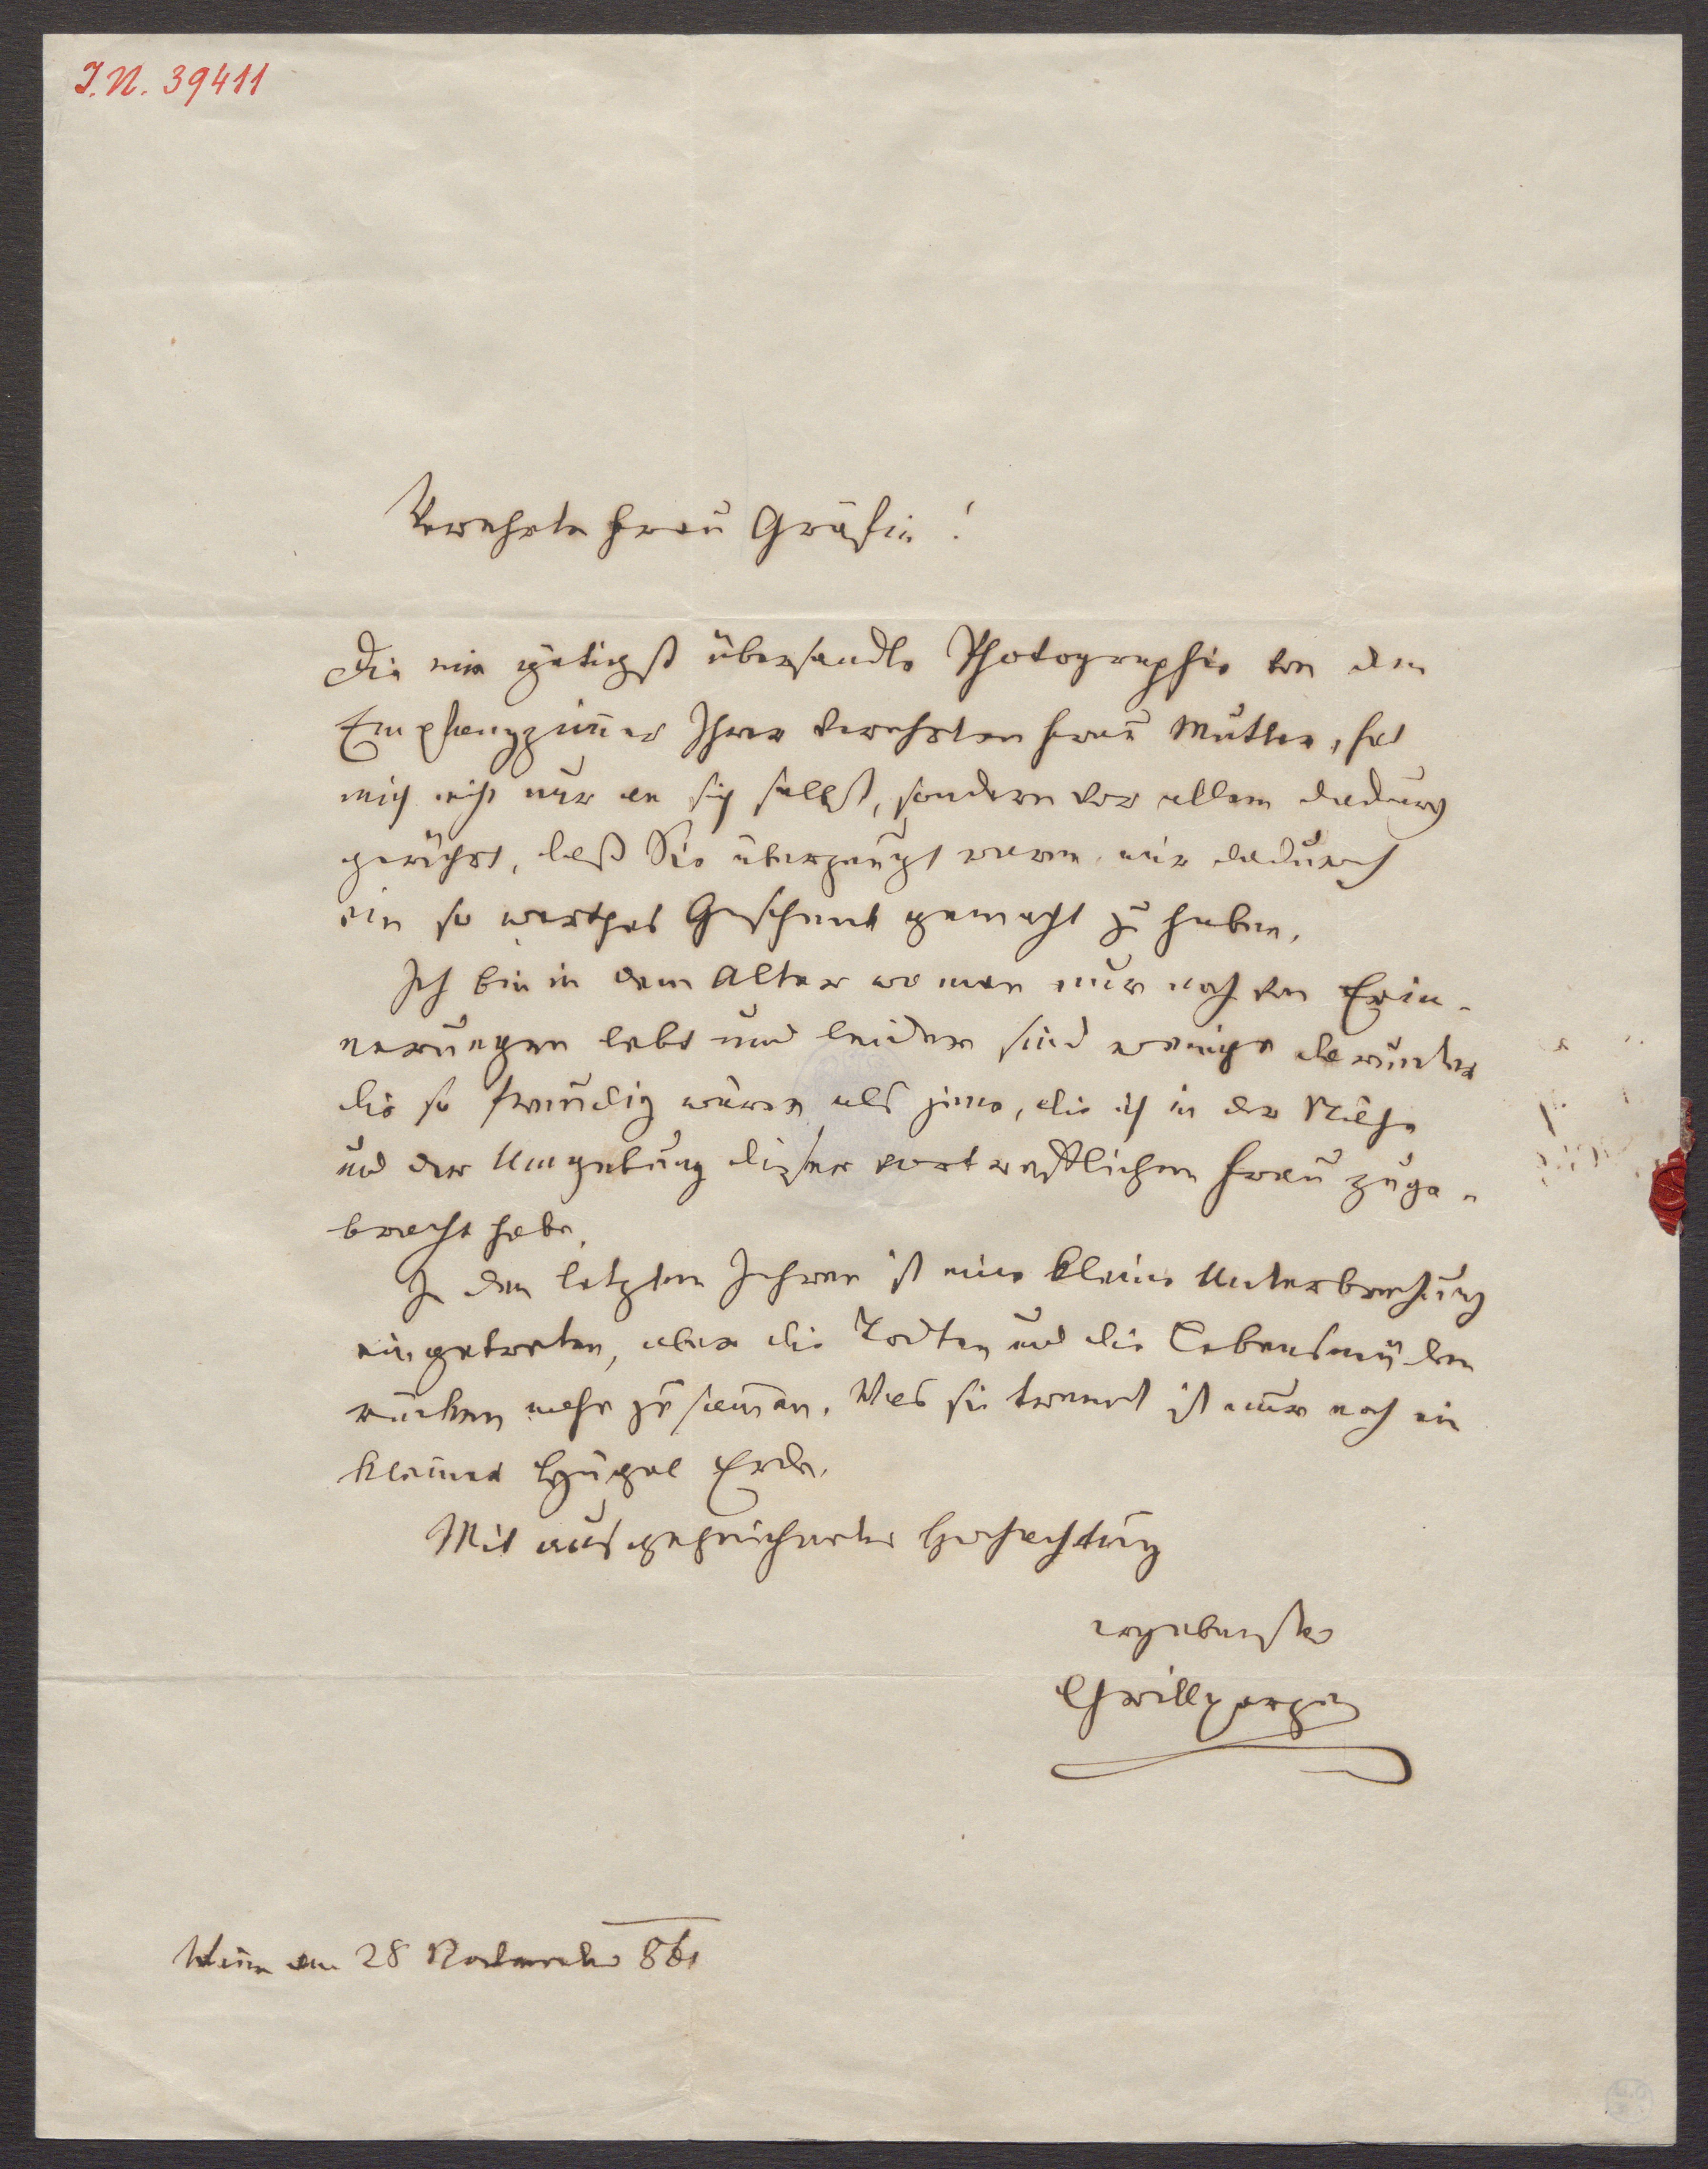 I.N. 39411
Verehrte Frau Gräfin!
Die mir gütigst übersandte Photographie von dem
Empfangzim̄er Ihrer verehrten Frau Mutter, hat
mich nicht nur an sich selbst, sondern vor allem dadurch
gerührt, daß Sie überzeugt waren mir dadurch
ein so werthes Geschenk gemacht zu haben.
Ich bin in dem Alter wo man nur noch von Erin-
nerungen lebt und leider sind wenige darunter
die so freudig wären als jene, die ich in der Nähe
und der Umgebung dieser vortrefflichen Frau zuge-
bracht habe.
In den letzten Jahren ist eine kleine Unterbrechung
eingetreten, aber die Todten und die Lebensmüden
rücken nahe zusam̄en. Was sie trennt ist nur noch ein
kleiner Hügel Erde.
Mit ausgezeichneter Hochachtung
ergebenster
Grillparzer
Wien am 28 November 861